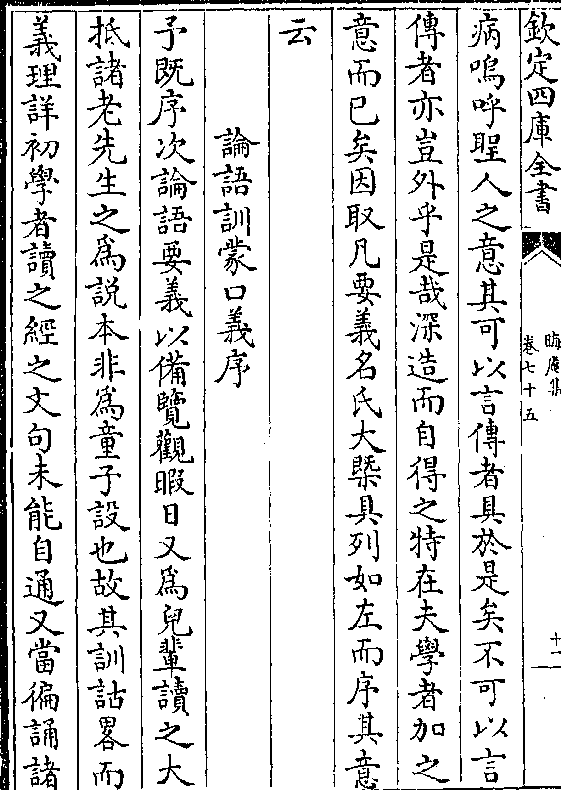 欽定四庫全書
晦庵集
卷七十五
十一
病嗚呼聖人之意其可以言傳者具於是矣不可以言
傳者亦豈外乎是哉深造而自得之特在夫學者加之
意而已矣因取凡要義名氏大槩具列如左而序其意
云
論語訓蒙口義序
予既序次論語要義以備覽觀暇日又為兒輩讀之大
抵諸老先生之為說本非為童子設也故其訓詁畧而
義理詳初學者讀之經之文句未能自通又當徧誦諸